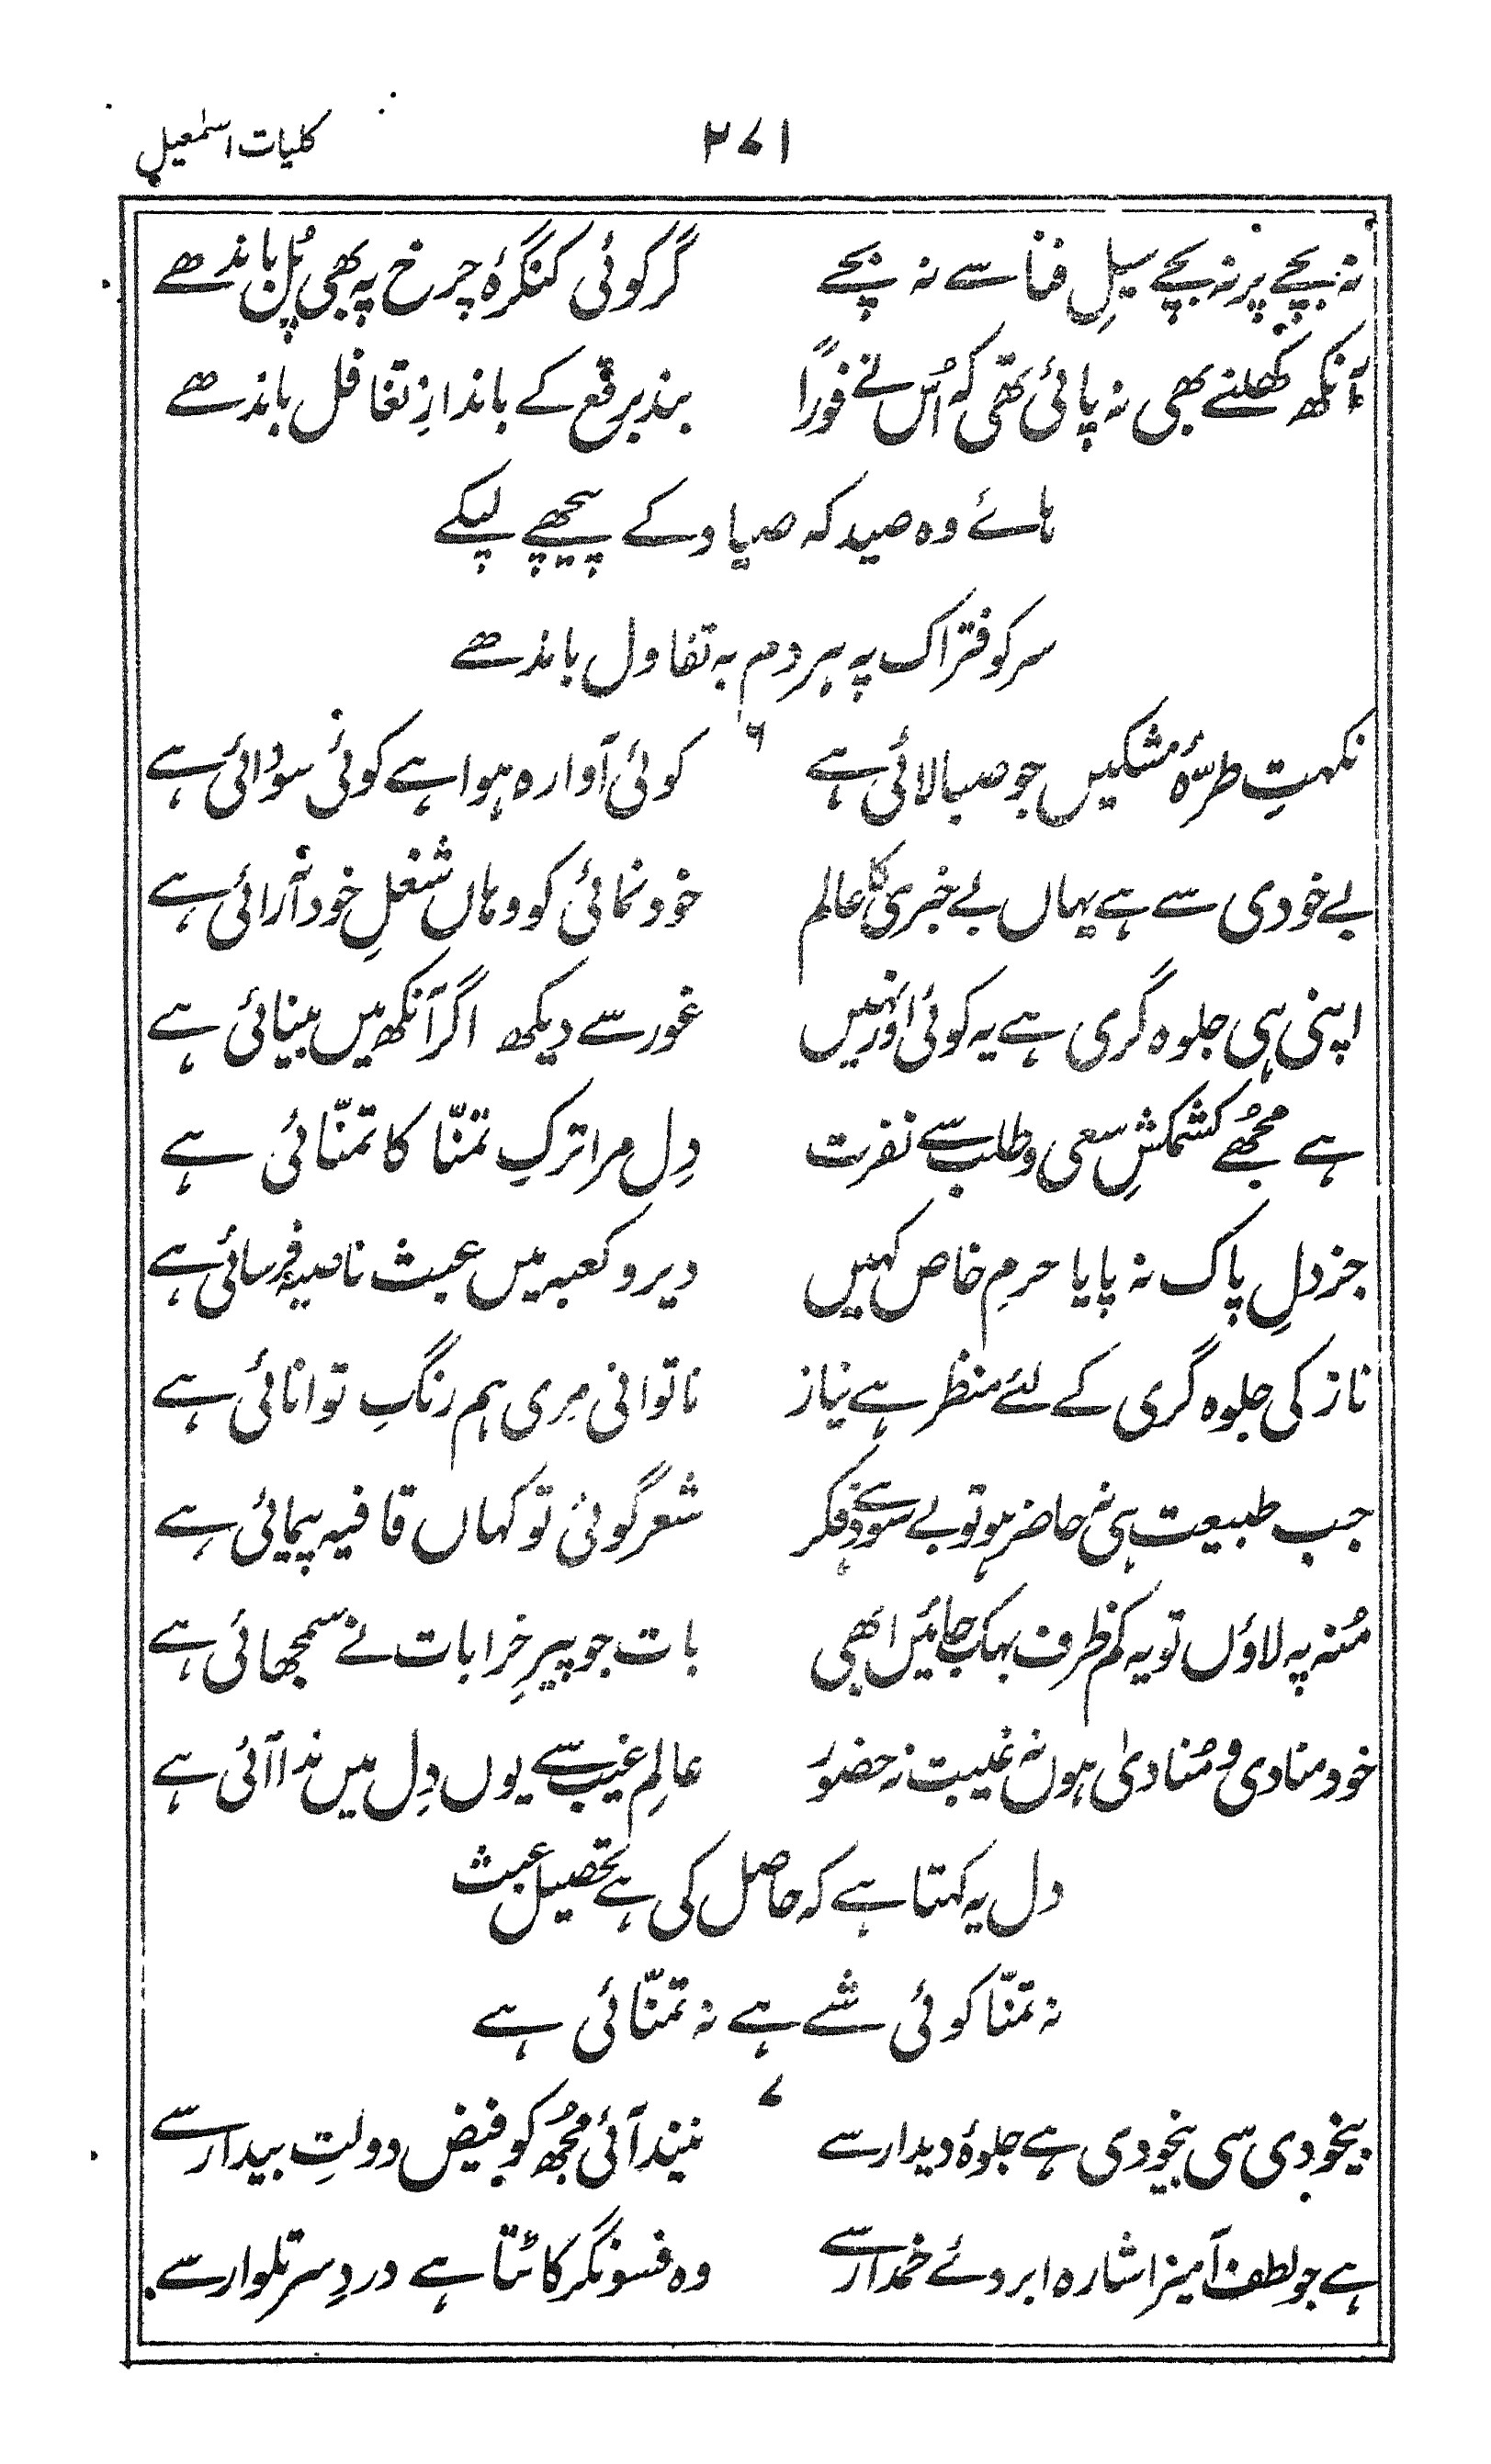 کلیات اسمٰعیل ۲۷۱
نہ بچے پر نہ بچے سیلِ فنا سے نہ بچے گر کوئی کنگرۂ چرخ پہ بھی پُل باندھے
آنکھ کھلنے بھی نہ پائی تھی کہ اُس نے فوراً بند برقع کے باندازِ تغافل باندھے
ہائے وہ صید کہ صیاد کے پیچھے لپکے
سر کو فتراک پہ ہر دم بہ تفاول باندھے
۶
نکہتِ طرّۂ مشکیں جو صبا لائی ہے کوئی آوارہ ہوا ہے کوئی سودائی ہے
بے خودی سے ہے یہاں بے خبری کا عالم خود نمائی کو وہاں شغلِ خود آرائی ہے
اپنی ہی جلوہ گری ہے یہ کوئی اور نہیں غور سے دیکھ اگر آنکھ میں بینائی ہے
ہے مجھے کشمکشِ سعی و طلب سے نفرت دِل مرا ترکِ تمنّا کا تمنّائی ہے
جز دلِ پاک نہ پایا حرمِ خاص کہیں دیر و کعبہ میں عبث ناصیہ فرسائی ہے
ناز کی جلوہ گری کے لئے منظر ہے نیاز ناتوانی مِری ہم رنگِ توانائی ہے
جب طبیعت ہی نہ حاضر ہو تو بے سود ہے فکر شعر گوئی تو کہاں قافیہ پیمائی ہے
مُنہ پہ لاؤں تو یہ کم ظرف بہک جائیں ابھی بات جو پیرِ خرابات نے سمجھائی ہے
خود منادی و مُنادیٰ ہوں نہ غیبت نہ حضور عالمِ غیب سے یوں دِل میں ندا آئی ہے
دل یہ کہتا ہے کہ حاصل کی ہے تحصیل عبث
نہ تمنّا کوئی شے ہے نہ تمنّائی ہے
۷
بیخودی سی بیخودی ہے جلوۂ دیدار سے نیند آئی مجُھ کو فیض دولتِ بیدار سے
ہے جو لطف آمیز اشارہ ابروئے خمدار سے وہ فسونگر کاٹتا ہے دردِ سر تلوار سے